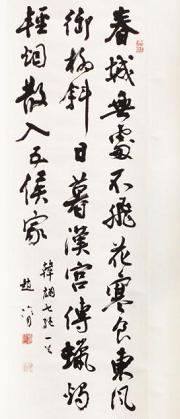 春城無處不飛花寒食東風
御柳斜日暮漢宮傳蠟燭
輕烟散入五侯家
韓翃七絕一首
趙